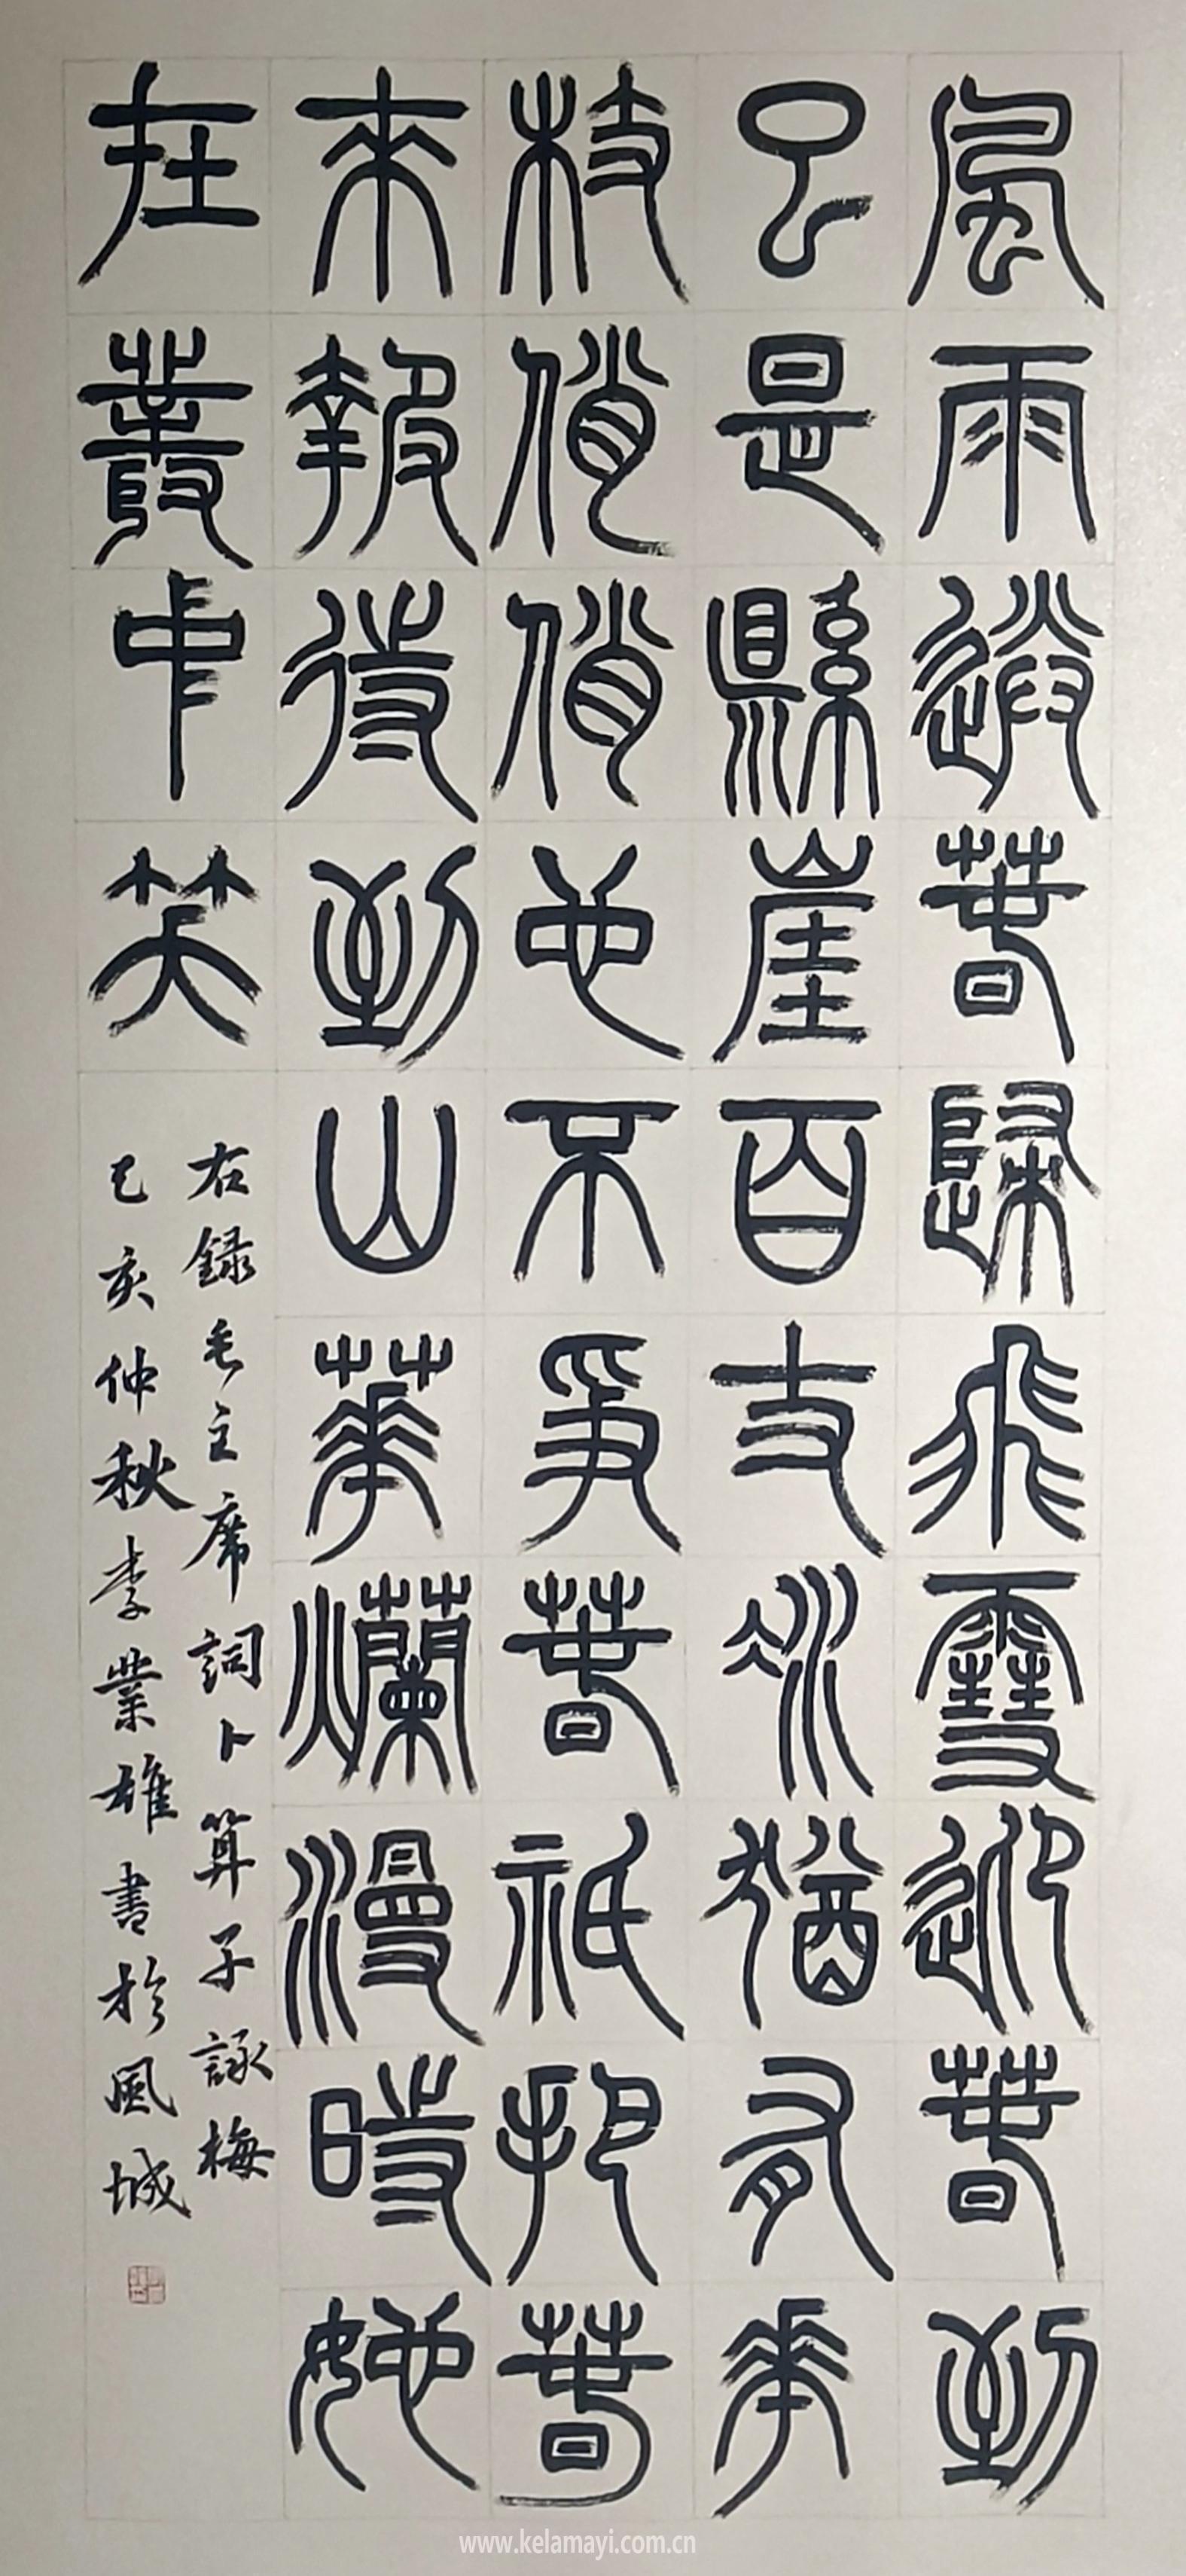 風雨送春歸飛雪迎春到
已是縣崖百丈冰猶有華
枝俏俏也不爭春祇把春
來報待到山華爛漫時她
在叢中笑
右録毛主席詞卜算子詠梅
己亥仲秋李業雄書於風城
www.kelamayi.com.cn